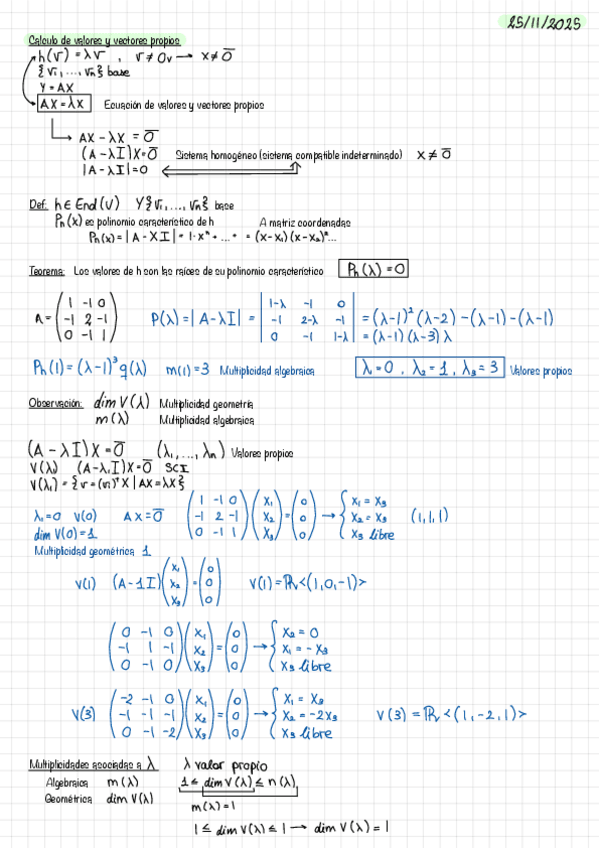 25/11/2025
Calculo de valores y vectores propios
h(v) = λv , v ≠ 0v → x ≠ 0̅
{v₁, ..., vₙ} base
Y = AX
AX = λX Ecuación de valores y vectores propios
AX - λX = 0̅
(A - λI)X = 0̅ Sistema homogéneo (sistema compatible indeterminado) X ≠ 0̅
|A - λI| = 0
Def. h ∈ End(V) Y {v₁, ..., vₙ} base
Pₕ(x) es polinomio característico de h A matriz coordenadas
Pₕ(x) = |A - XI| = 1·xⁿ + ... + = (x-x₁)(x-x₂)²...
Teorema: Los valores de h son las raíces de su polinomio característico Pₕ(λ) = 0
A = ( 1 -1 0 ; -1 2 -1 ; 0 -1 1 ) P(λ) = |A - λI| = | 1-λ -1 0 ; -1 2-λ -1 ; 0 -1 1-λ | = (λ-1)²(λ-2) - (λ-1) - (λ-1)
= (λ-1)(λ-3)λ
Pₕ(1) = (λ-1)³ q(λ) m(1) = 3 Multiplicidad algebraica λ = 0 , λ₂ = 1 , λ₃ = 3 Valores propios
Observación: dim V(λ) Multiplicidad geometría
m(λ) Multiplicidad algebraica
(A - λI)X = 0̅ (λ₁, ..., λₙ) Valores propios
V(λ) (A - λ₁I)X = 0̅ SCI
V(λ₁) = {v = (vᵢ)ᵗX | AX = λX}
λ₁ = 0 V(0) AX = 0̅ ( 1 -1 0 ; -1 2 -1 ; 0 -1 1 ) ( x₁ ; x₂ ; x₃ ) = ( 0 ; 0 ; 0 ) → { x₁ = x₃ ; x₂ = x₃ ; x₃ libre (1,1,1)
dim V(0) = 1
Multiplicidad geométrica 1
V(1) (A - 1I) ( x₁ ; x₂ ; x₃ ) = ( 0 ; 0 ; 0 ) V(1) = ℝ<(1,0,-1)>
( 0 -1 0 ; -1 1 -1 ; 0 -1 0 ) ( x₁ ; x₂ ; x₃ ) = ( 0 ; 0 ; 0 ) → { x₂ = 0 ; x₁ = -x₃ ; x₃ libre
V(3) ( -2 -1 0 ; -1 -1 -1 ; 0 -1 -2 ) ( x₁ ; x₂ ; x₃ ) = ( 0 ; 0 ; 0 ) → { x₁ = x₃ ; x₂ = -2x₃ ; x₃ libre V(3) = ℝ<(1,-2,1)>
Multiplicidades asociadas a λ λ valor propio
Algebraica m(λ) 1 ≤ dim V(λ) ≤ n(λ)
Geométrica dim V(λ) m(λ) = 1
1 ≤ dim V(λ) ≤ 1 → dim V(λ) = 1